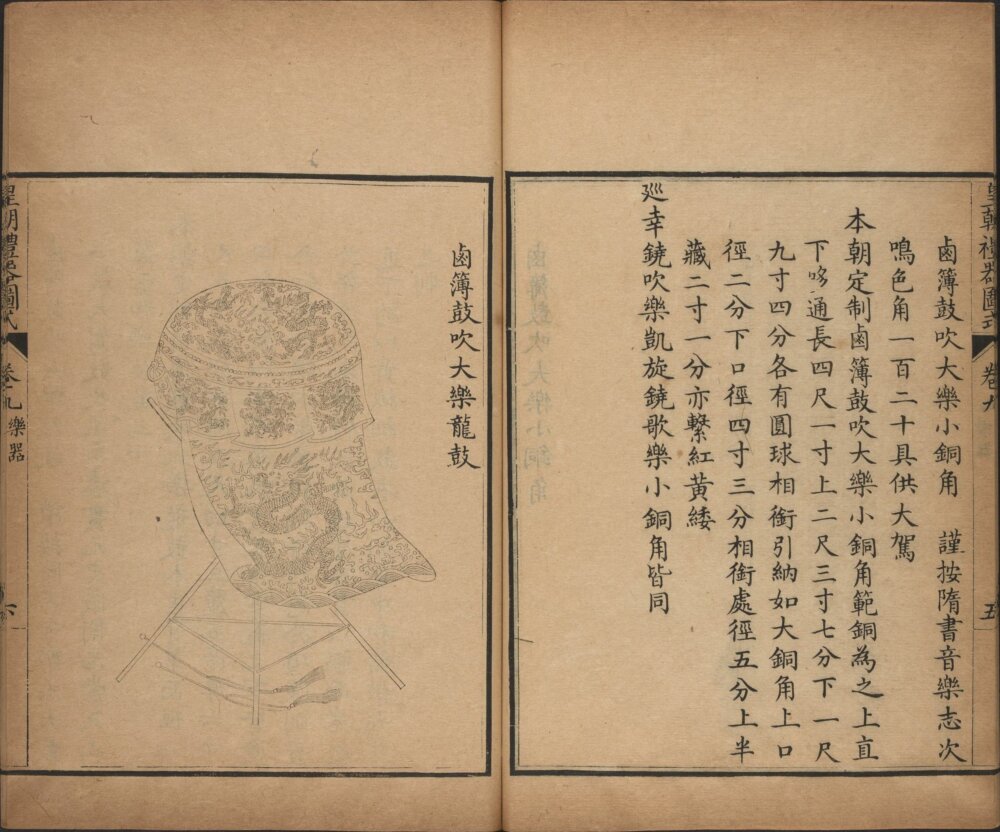 皇朝禮器圖式
卷九
五
鹵簿鼓吹大樂小銅角　謹按隋書音樂志次
鳴色角一百二十具供大駕
本朝定制鹵簿鼓吹大樂小銅角範銅為之上直
下哆通長四尺一寸上二尺三寸七分下一尺
九寸四分各有圓球相銜引納如大銅角上口
徑二分下口徑四寸三分相銜處徑五分上半
藏二寸一分亦繫紅黃緌
巡幸鐃吹樂凱旋鐃歌樂小銅角皆同
鹵簿鼓吹大樂龍鼓
皇朝禮器圖式
卷九樂器